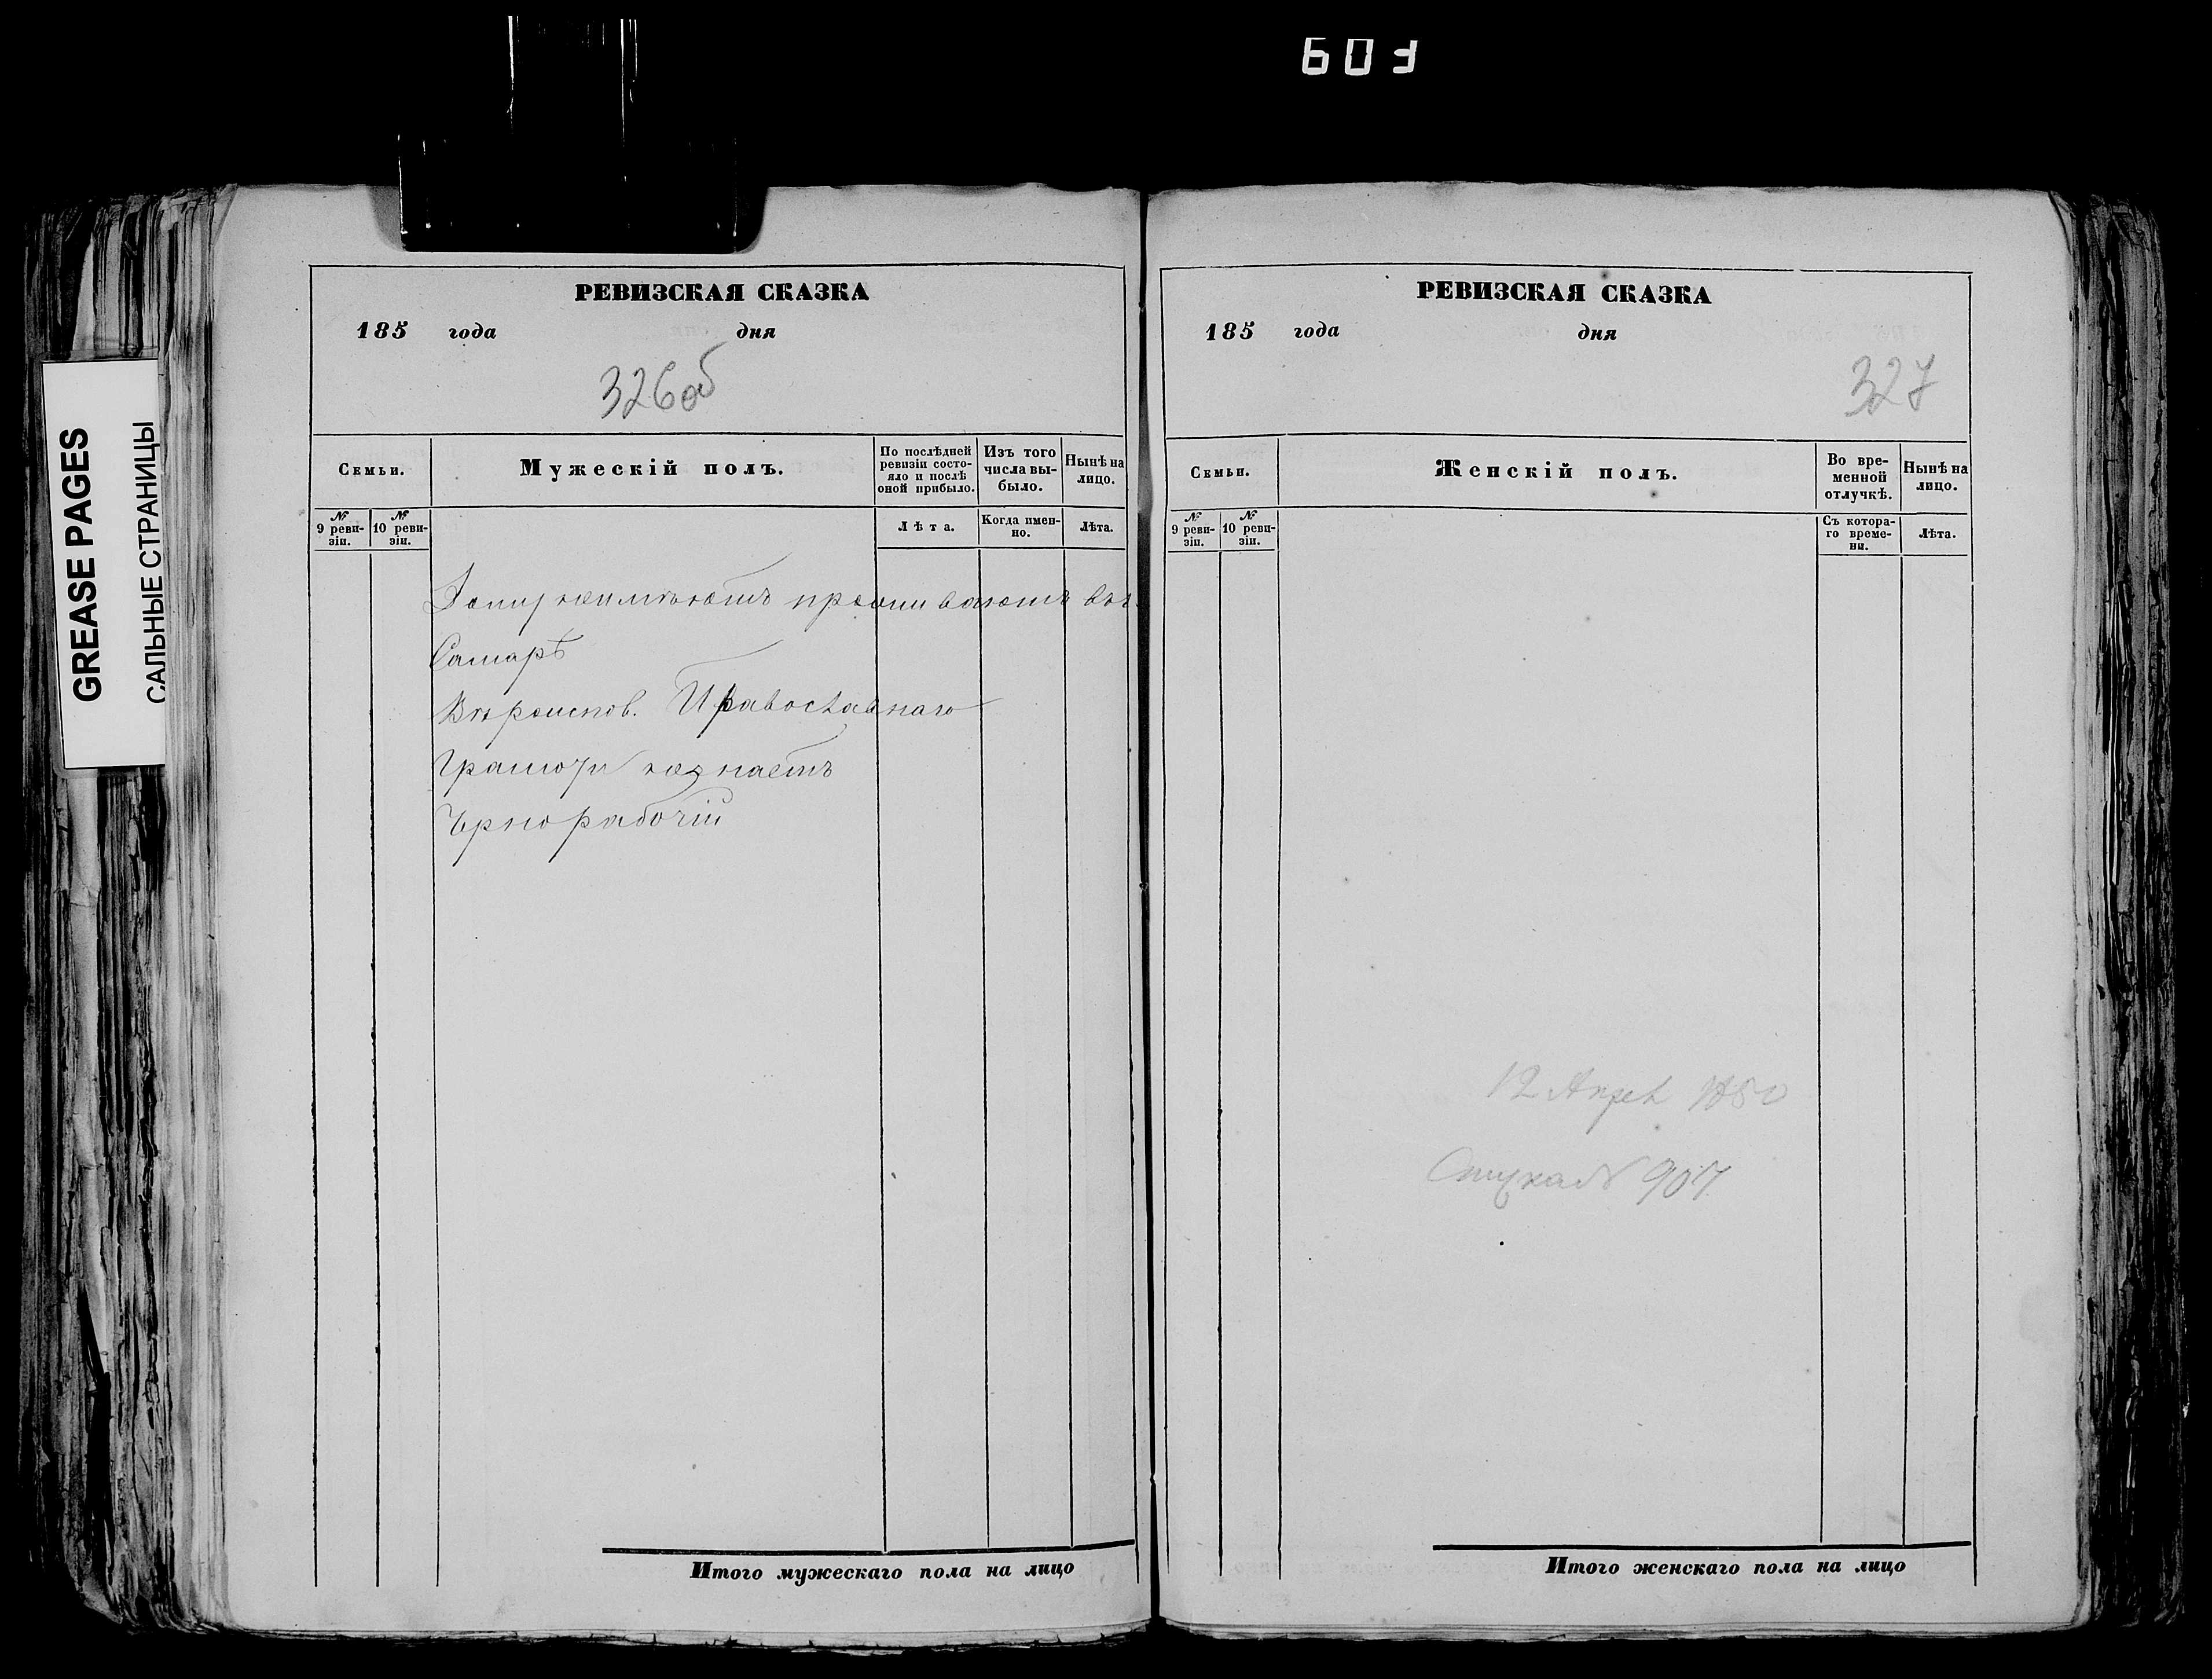 603
GREASE PAGES
САЛЬНЫЕ СТРАНИЦЫ
РЕВИЗСКАЯ СКАЗКА
185 года дня
326об
Семьи.
Мужескій полъ.
По послѣдней ревизіи состо-
яло и послѣ
оной прибыло.
Изъ того
числа вы-
было.
Нынѣ на
лицо.
№
9 реви-
зіи.
№
10 реви-
зіи.
Лѣта.
Когда имен-
но.
Лѣта.
неимѣютъ проживаютъ въ
Самарѣ
Вѣроиспов. Православнаго
Грамоты незнаетъ
Чрнорабочій
Итого мужескаго пола на лицо
РЕВИЗСКАЯ СКАЗКА
185 года дня
327
Семьи.
Женскій полъ.
Во вре-
менной
отлучкѣ.
Нынѣ на
лицо.
№
9 реви-
зіи.
№
10 реви-
зіи.
Съ котора-
го време-
ни.
Лѣта.
12 Апрел
907
Итого женскаго пола на лицо